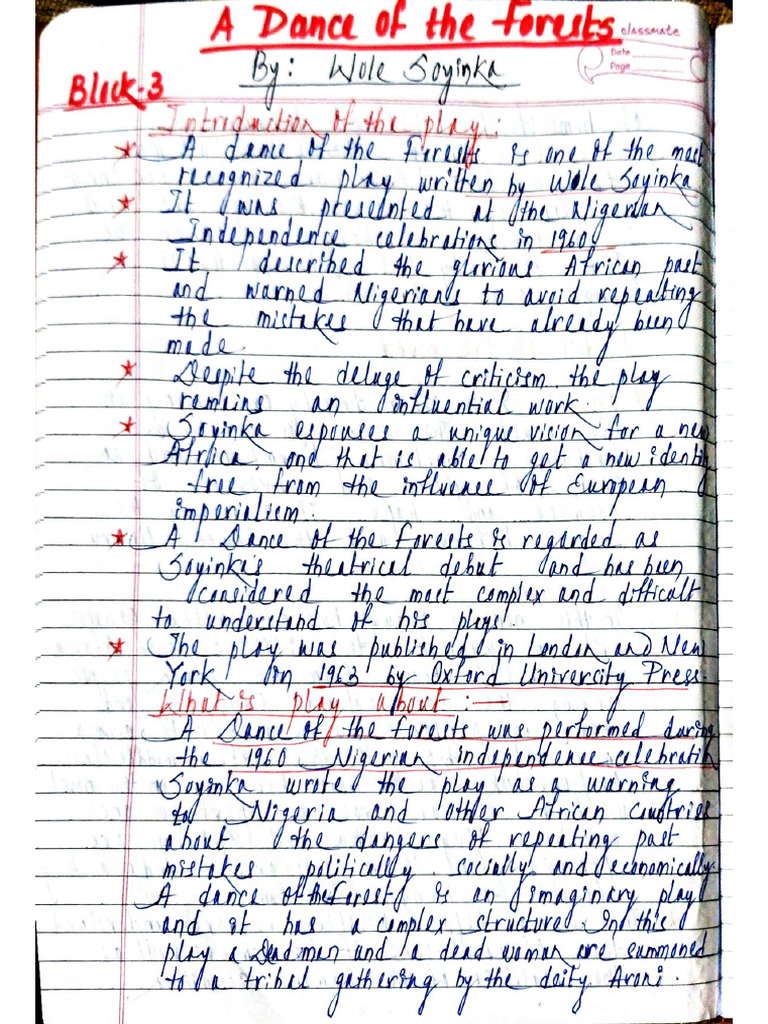 A Dance of the Forests
classmate
Date
Page
By: Wole Soyinka
Block-3
Introduction of the play:
A dance of the Forests is one of the most
recognized play written by Wole Soyinka
It was presented at the Nigerian
Independence celebrations in 1960.
It described the glorious African past
and warned Nigerians to avoid repeating
the mistakes that have already been
made.
Despite the deluge of criticism the play
remains an influential work.
Soyinka espouses a unique vision for a new
Africa, one that is able to get a new identity
free from the influence of European
imperialism.
A Dance of the Forests is regarded as
Soyinka's theatrical debut and has been
considered the most complex and difficult
to understand of his plays.
The play was published in London and New
York in 1963 by Oxford University Press.
What is play about :—
A Dance of the forests was performed during
the 1960 Nigerian independence celebration
Soyinka wrote the play as a warning
to Nigeria and other African countries
about the dangers of repeating past
mistakes politically, socially and economically.
A dance of the forests is an imaginary play
and it has a complex structure. In this
play a Dead man and a dead woman are summoned
to a tribal gathering by the deity Aroni.